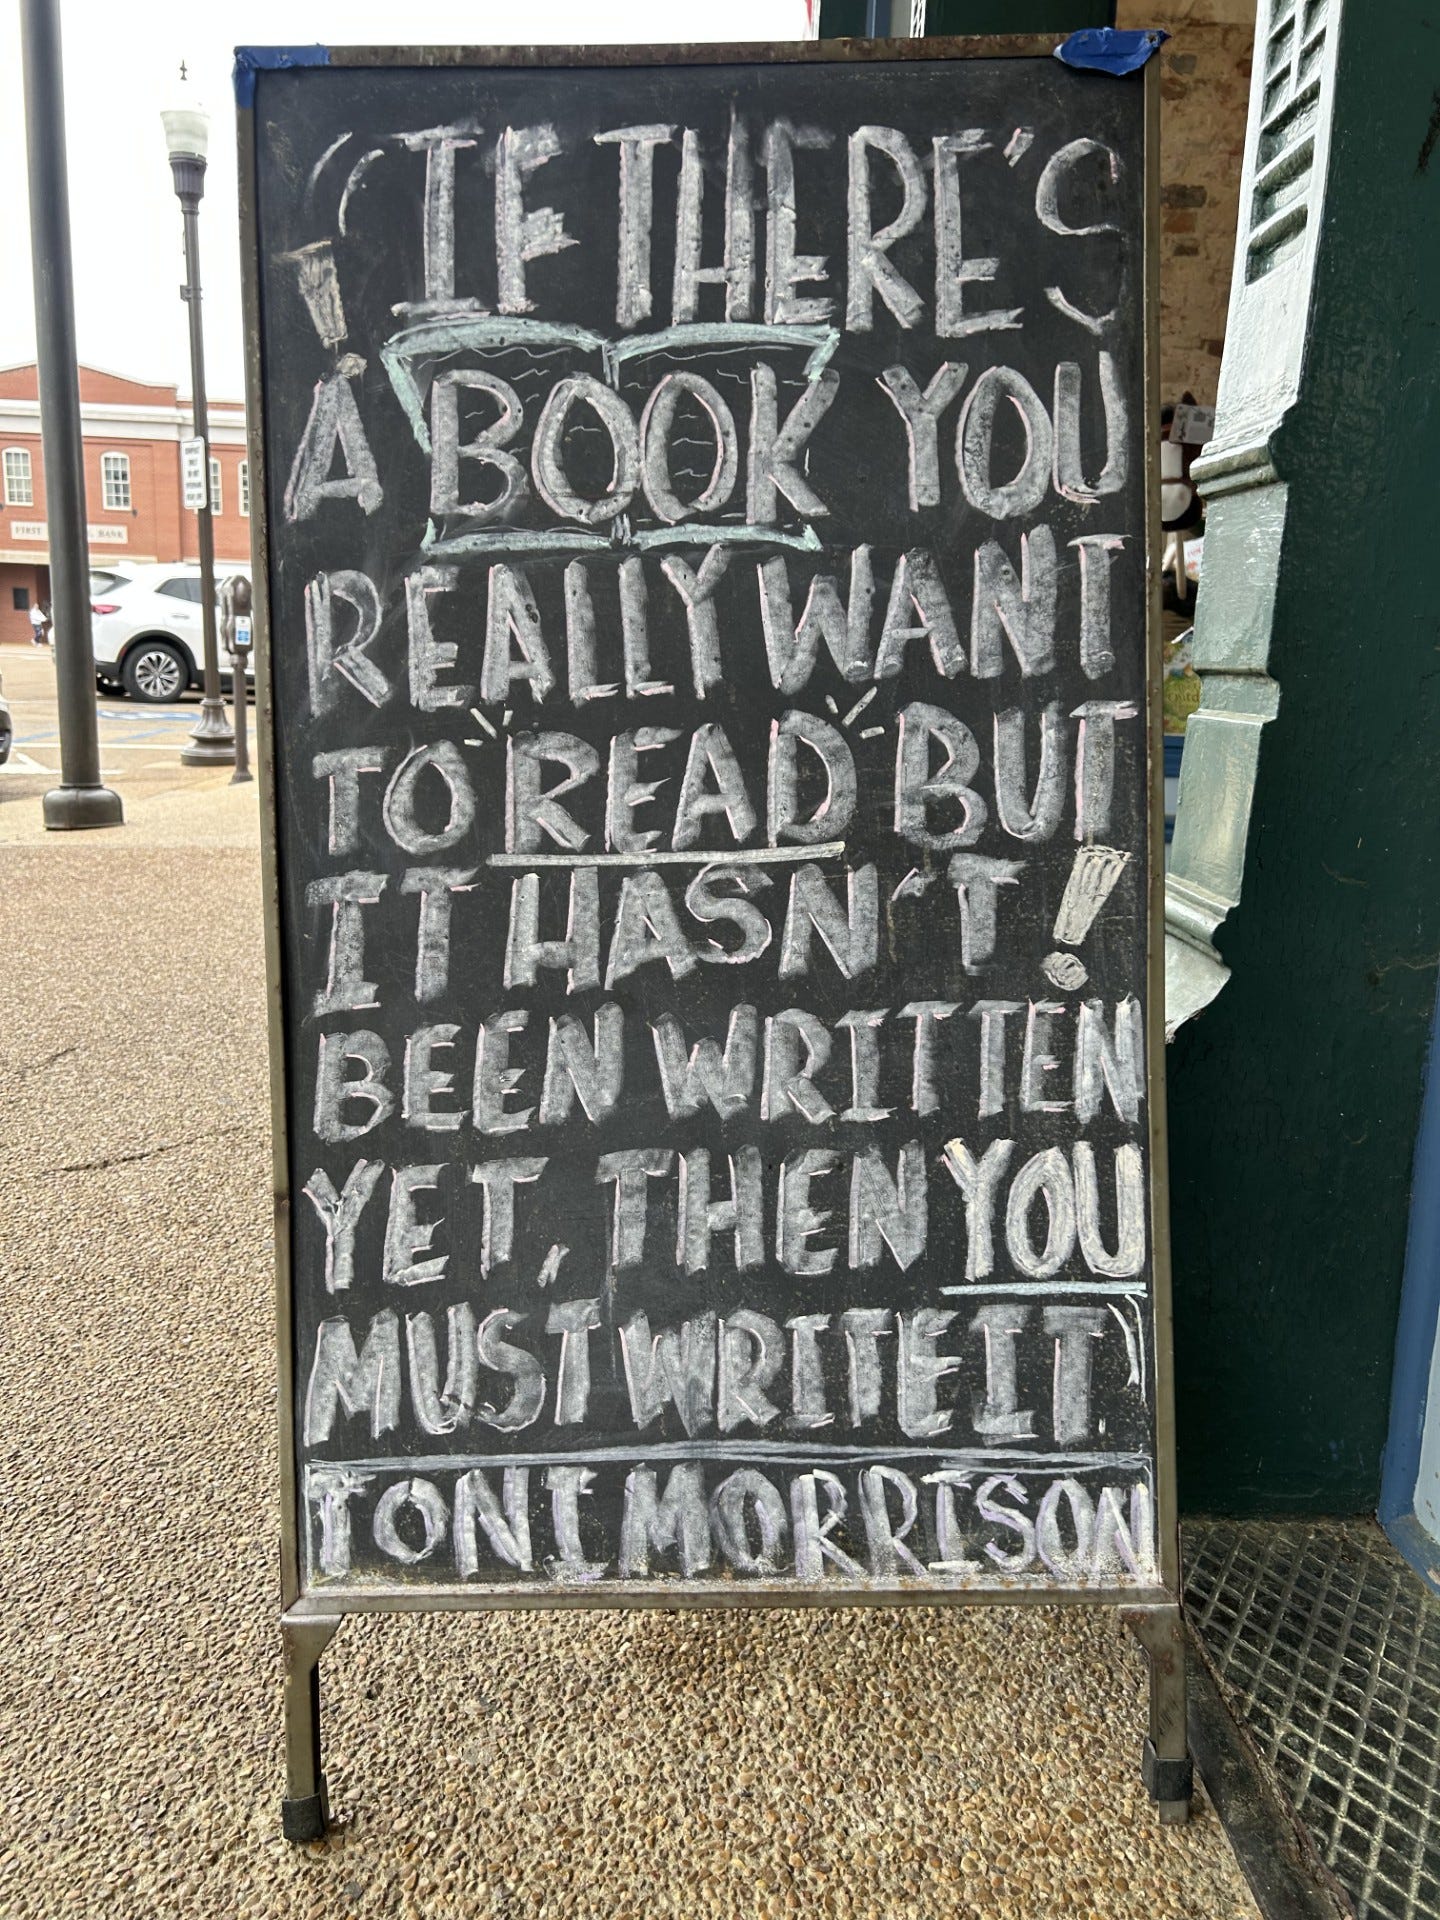 "IF THERE'S
A BOOK YOU
REALLY WANT
TO READ BUT
IT HASN'T
BEEN WRITTEN
YET, THEN YOU
MUST WRITE IT."
TONI MORRISON
FIRST
BANK